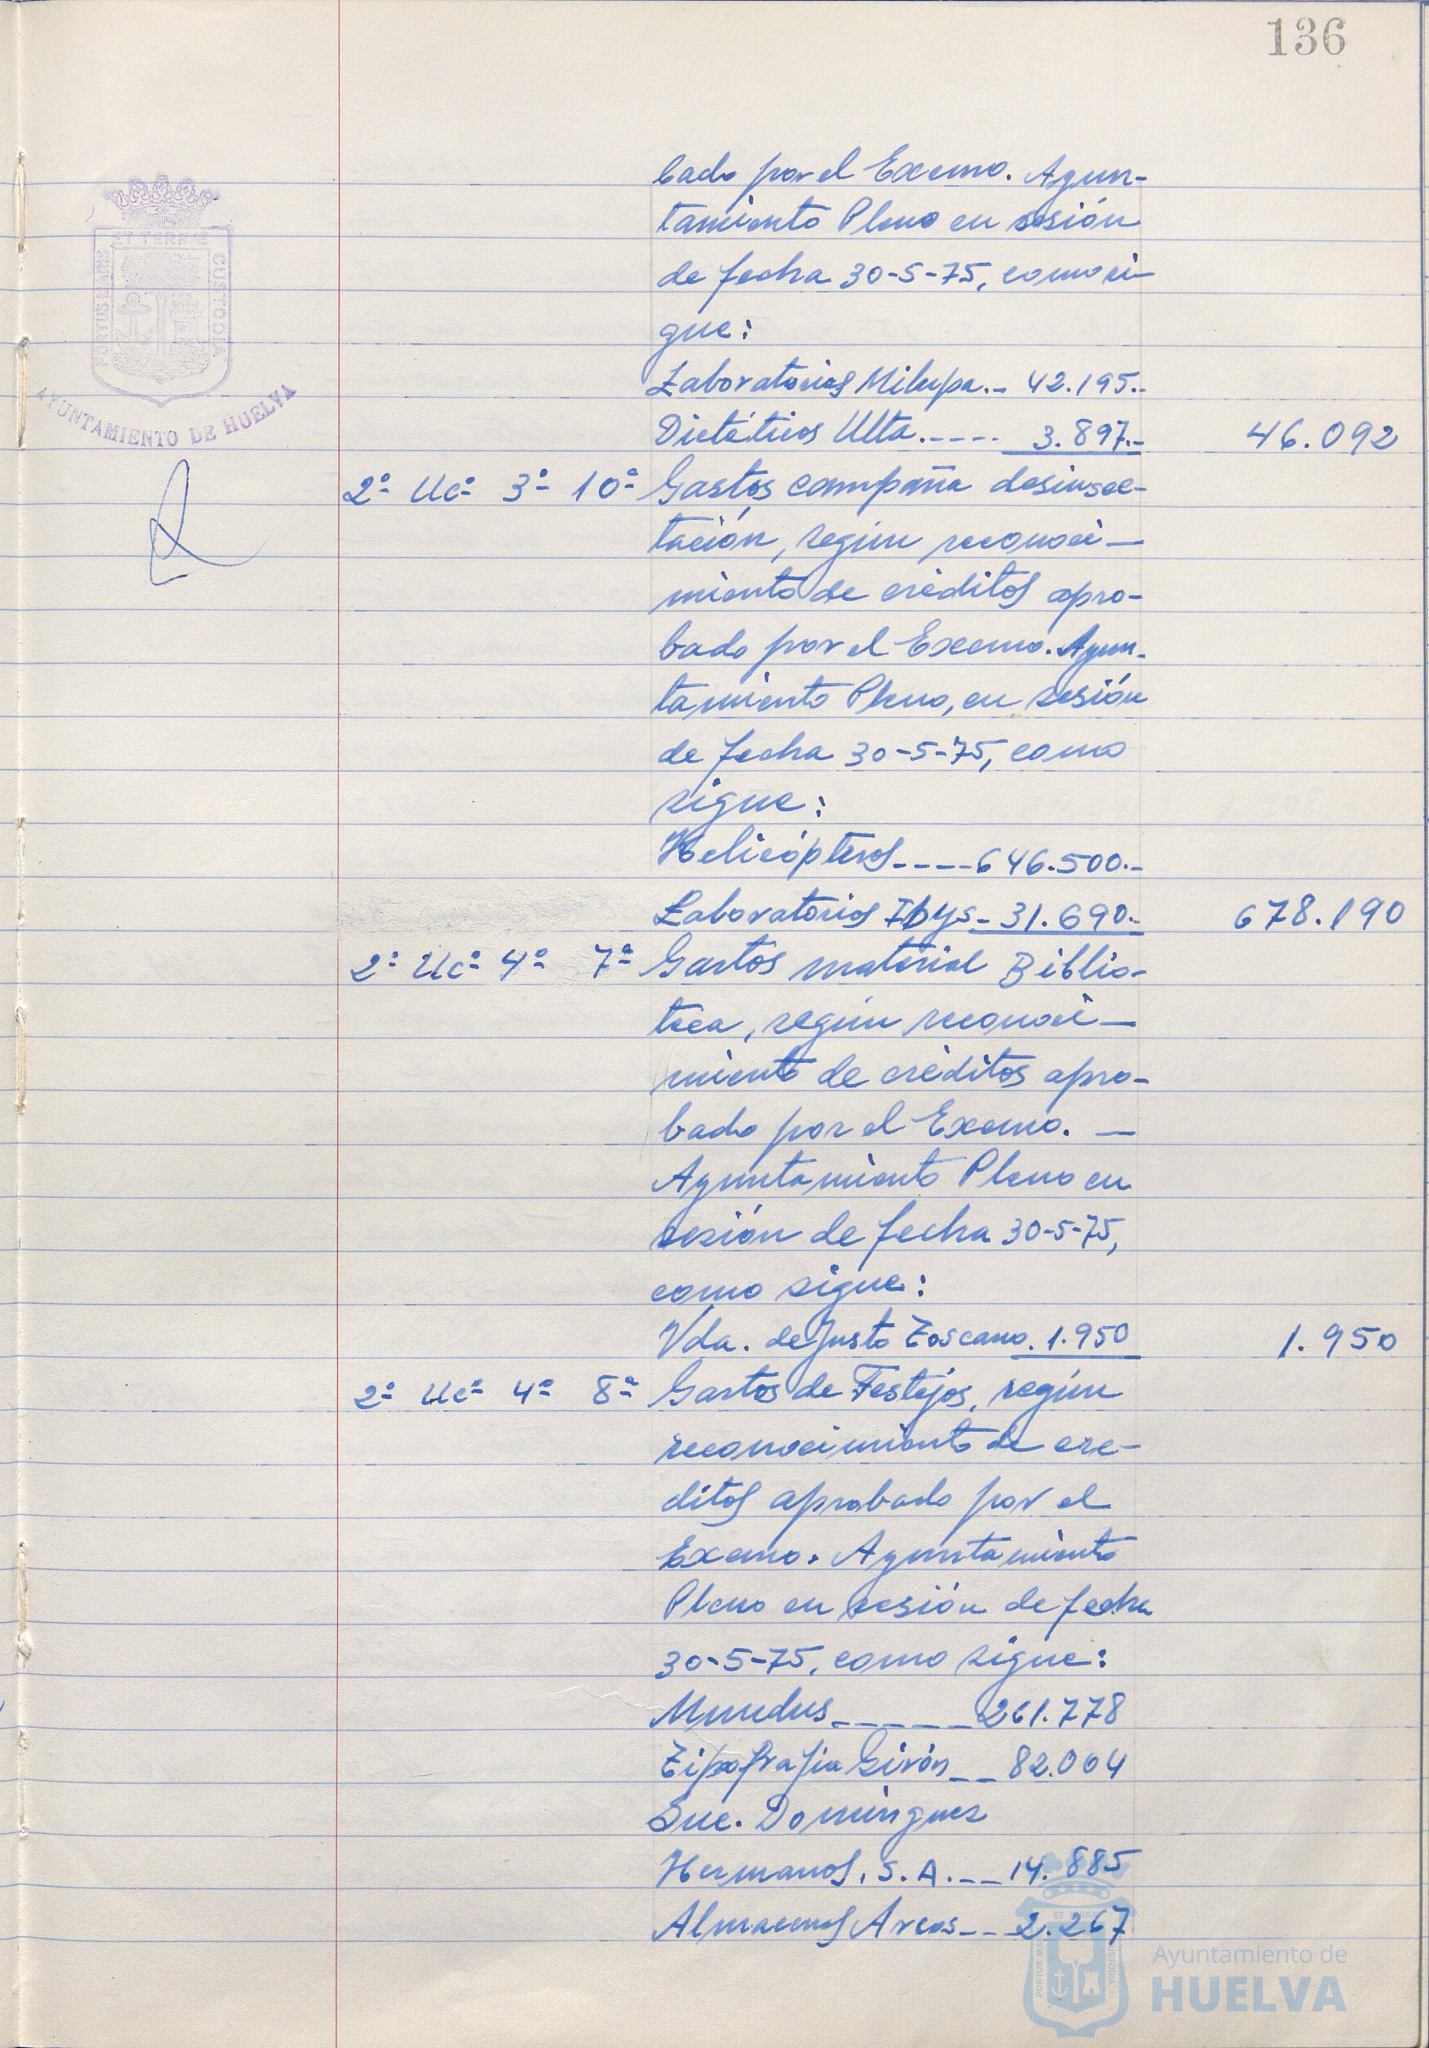 136
bado por el Excmo. Ayun-
tamiento Pleno en sesión
de fecha 30-5-75, como si-
gue:
Laboratorios Milupa.- 42.195.-
Dietéticos Ulta.---- 3.897.- 46.092
2º Ucº 3º 10º Gastos campaña desinsec-
tación, según reconoci-
miento de créditos apro-
bado por el Excmo. Ayun-
tamiento Pleno, en sesión
de fecha 30-5-75, como
sigue:
Helicópteros---- 646.500.-
Laboratorios Ibys- 31.690.- 678.190
2º Ucº 4º 7º Gastos material Biblio-
teca, según reconoci-
miento de créditos apro-
bado por el Excmo. -
Ayuntamiento Pleno en
sesión de fecha 30-5-75,
como sigue:
Vda. de Justo Toscano. 1.950 1.950
2º Ucº 4º 8º Gastos de Festejos, según
reconocimiento de cré-
ditos aprobado por el
Excmo. Ayuntamiento
Pleno en sesión de fecha
30-5-75, como sigue:
Mundus------ 261.778
Tipografia Girón-- 82.004
Suc. Dominguez
Hermanos, S.A.-- 14.885
Almacenes Arcos-- 2.267
PORTUS MARIS
ET TERRÆ
CUSTODIA
AYUNTAMIENTO DE HUELVA
Ayuntamiento de
HUELVA